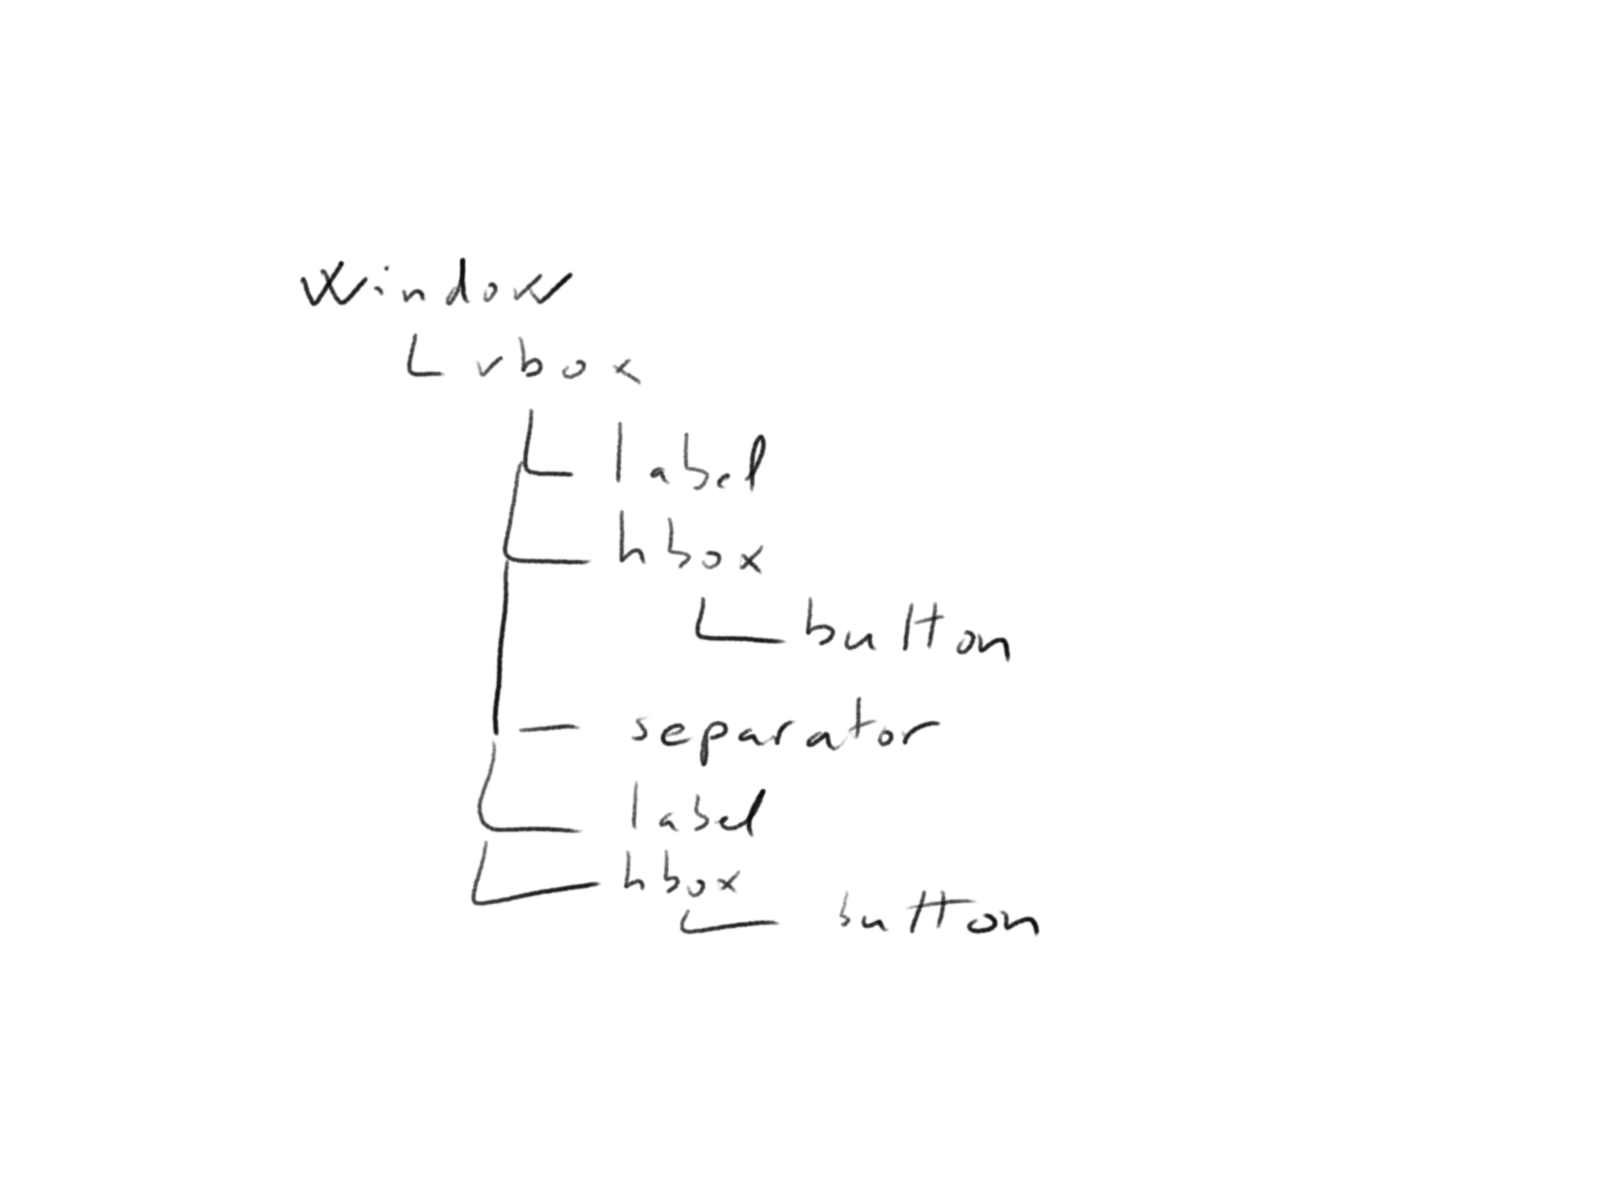 Window
vbox
label
hbox
button
separator
label
hbox
button